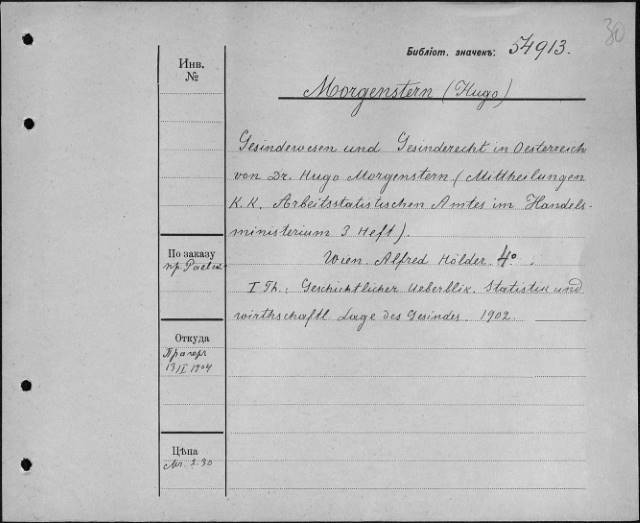 30
Библіот. значекъ: 54913.
Инв.
№
Morgenstern (Hugo)
Gesindewesen und Gesinderecht in Oesterreich
von Dr. Hugo Morgenstern (Mittheilungen
K. K. Arbeitsstatistischen Amtes im Handels-
ministerium 3 Heft).
Wien. Alfred Hölder. 4°.
I Th.: Geschichtlicher Ueberblik. Statistik und
wirthschaftl Lage des Gesindes. 1902.
По заказу
пр.
Откуда
Прагеръ
1904
Цѣна
Mr. 2.30